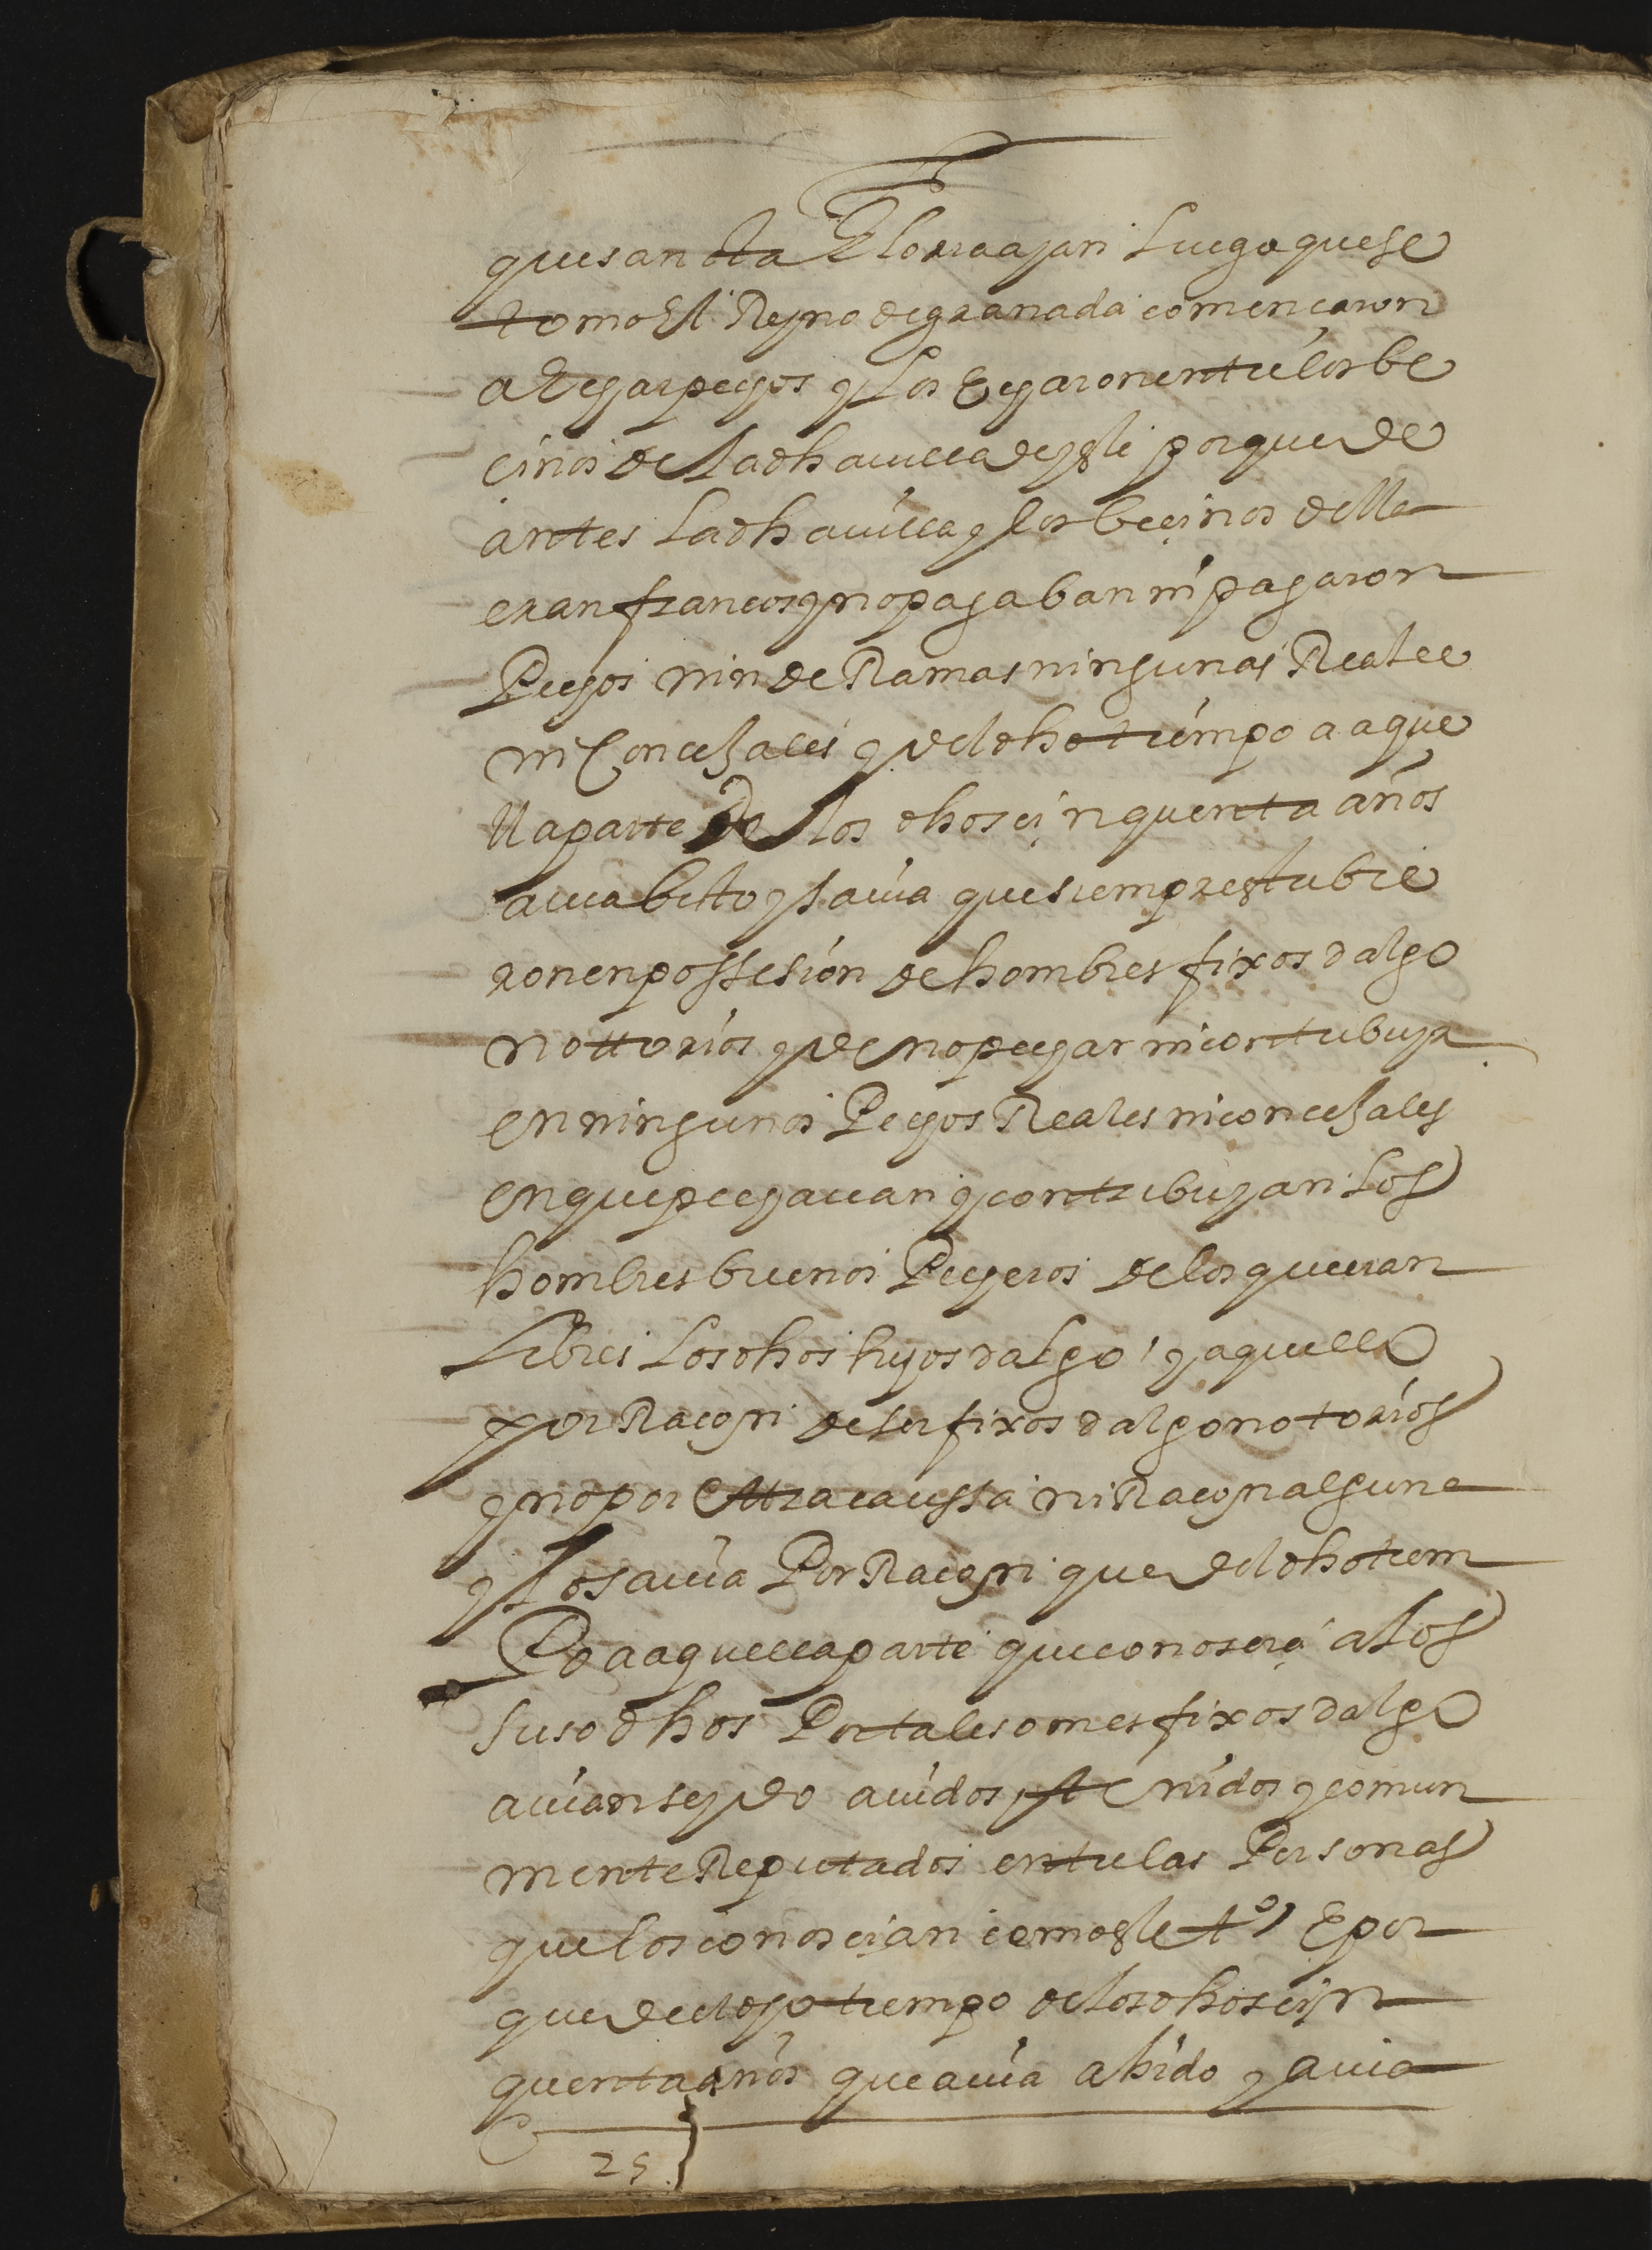 que santa Gloria ayan Luego que se
tomo El Reyno de granada comencaron
a Echar pechos y Los Echaron entre los be
cinos de La dha uilla de ysli porque de
antes La dha uilla y los becinos della
eran francos y no pagaban ni pagaron
Pechos nin deRamas ningunas Reales
ni Concexales y del dho tiempo a aque
lla parte de los dhos cinquenta años
auia bisto y sauia que siempre estubie
ron en possesion de hombres fixos dalgo
nottorios y de no pechar ni contribuyr
en ningunos Pechos Reales ni concexales
en que pechauan y contribuyan Los
hombres buenos Pecheros de los que eran
Libres Los dhos hijos dalgo y aquello
por Racon de ser fixos dalgo notorios
y no por ottra caussa ni Racon alguna
y Lo sauia Por Racon que del dho tiem
Po a aquella parte que conoscia a los
suso dhos Por tales omes fixos dalgo
auian seydo auidos y tenidos y comun
mente Reputados entre las Personas
que los conoscian como este tº E por
que de el dho tiempo de los dhos cin
quenta años que auia abido y auia
25